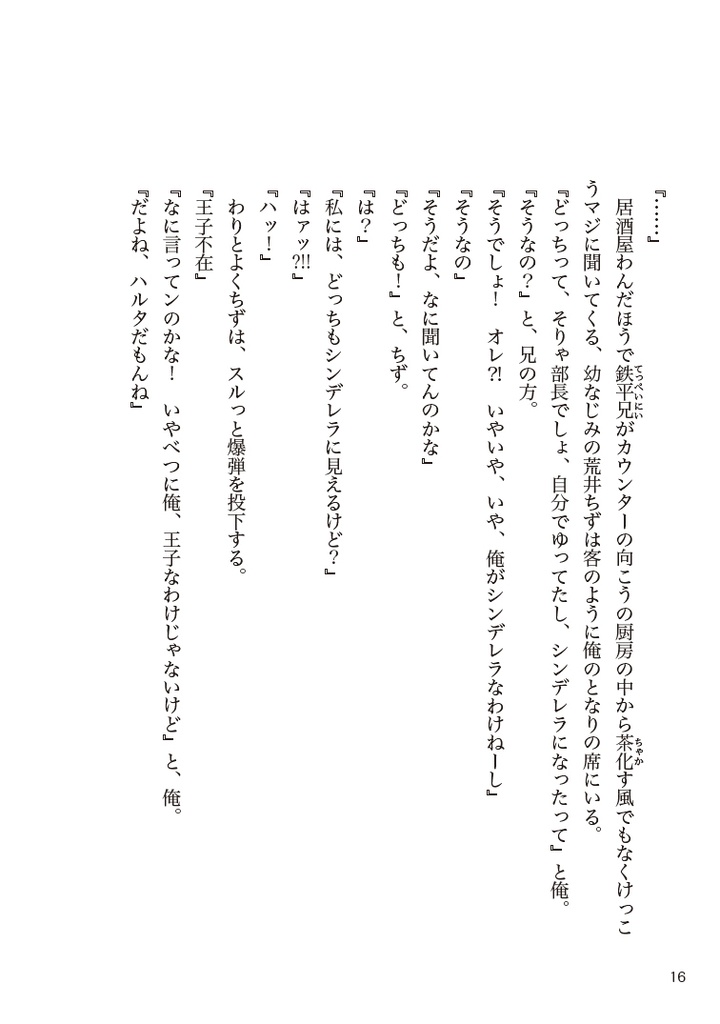 『……』
　居酒屋わんだほうで鉄平兄がカウンターの向こうの厨房の中から茶化す風でもなくけっこ
うマジに聞いてくる、幼なじみの荒井ちずは客のように俺のとなりの席にいる。
『どっちって、そりゃ部長でしょ、自分でゆってたし、シンデレラになったって』と俺。
『そうなの？』と、兄の方。
『そうでしょ！　オレ⁈　いやいや、いや、俺がシンデレラなわけねーし』
『そうなの』
『そうだよ、なに聞いてんのかな』
『どっちも！』と、ちず。
『は？』
『私には、どっちもシンデレラに見えるけど？』
『はァッ?!!』
『ハッ！』
　わりとよくちずは、スルっと爆弾を投下する。
『王子不在』
『なに言ってンのかな！　いやべつに俺、王子なわけじゃないけど』と、俺。
『だよね、ハルタだもんね』
てっぺいにい
ちゃか
16